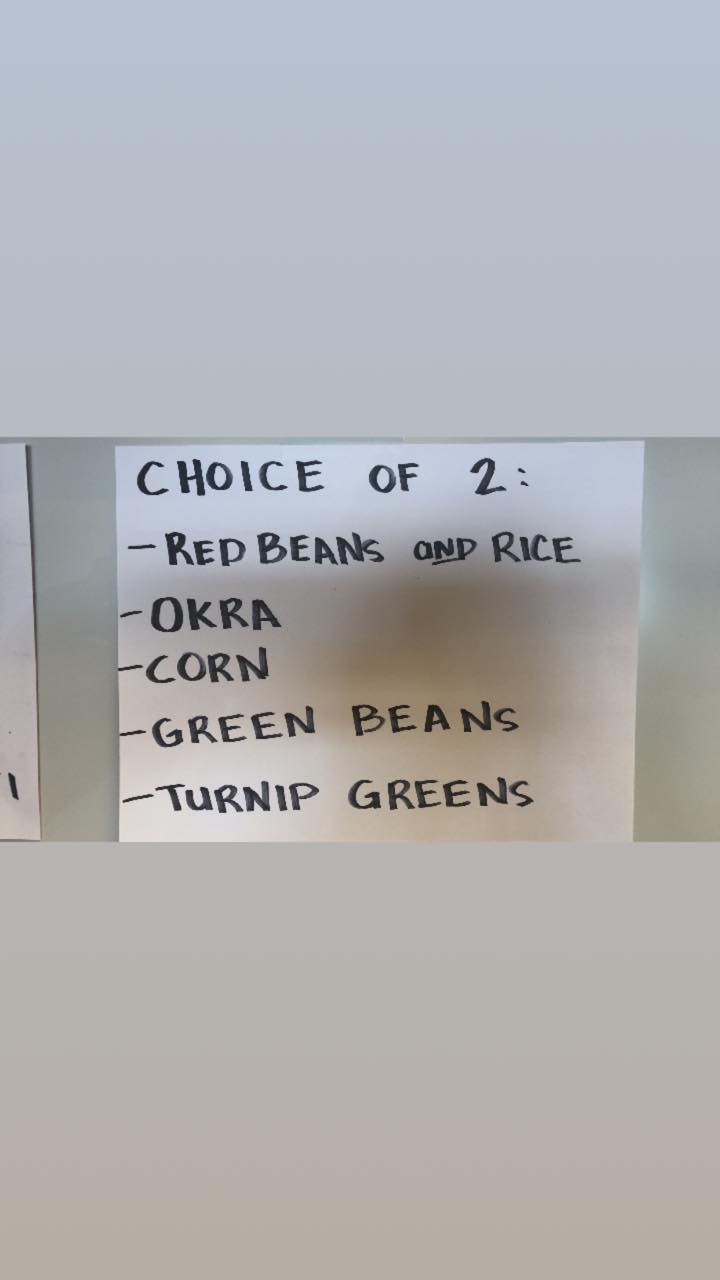 CHOICE OF 2:
- RED BEANS AND RICE
- OKRA
- CORN
- GREEN BEANS
- TURNIP GREENS